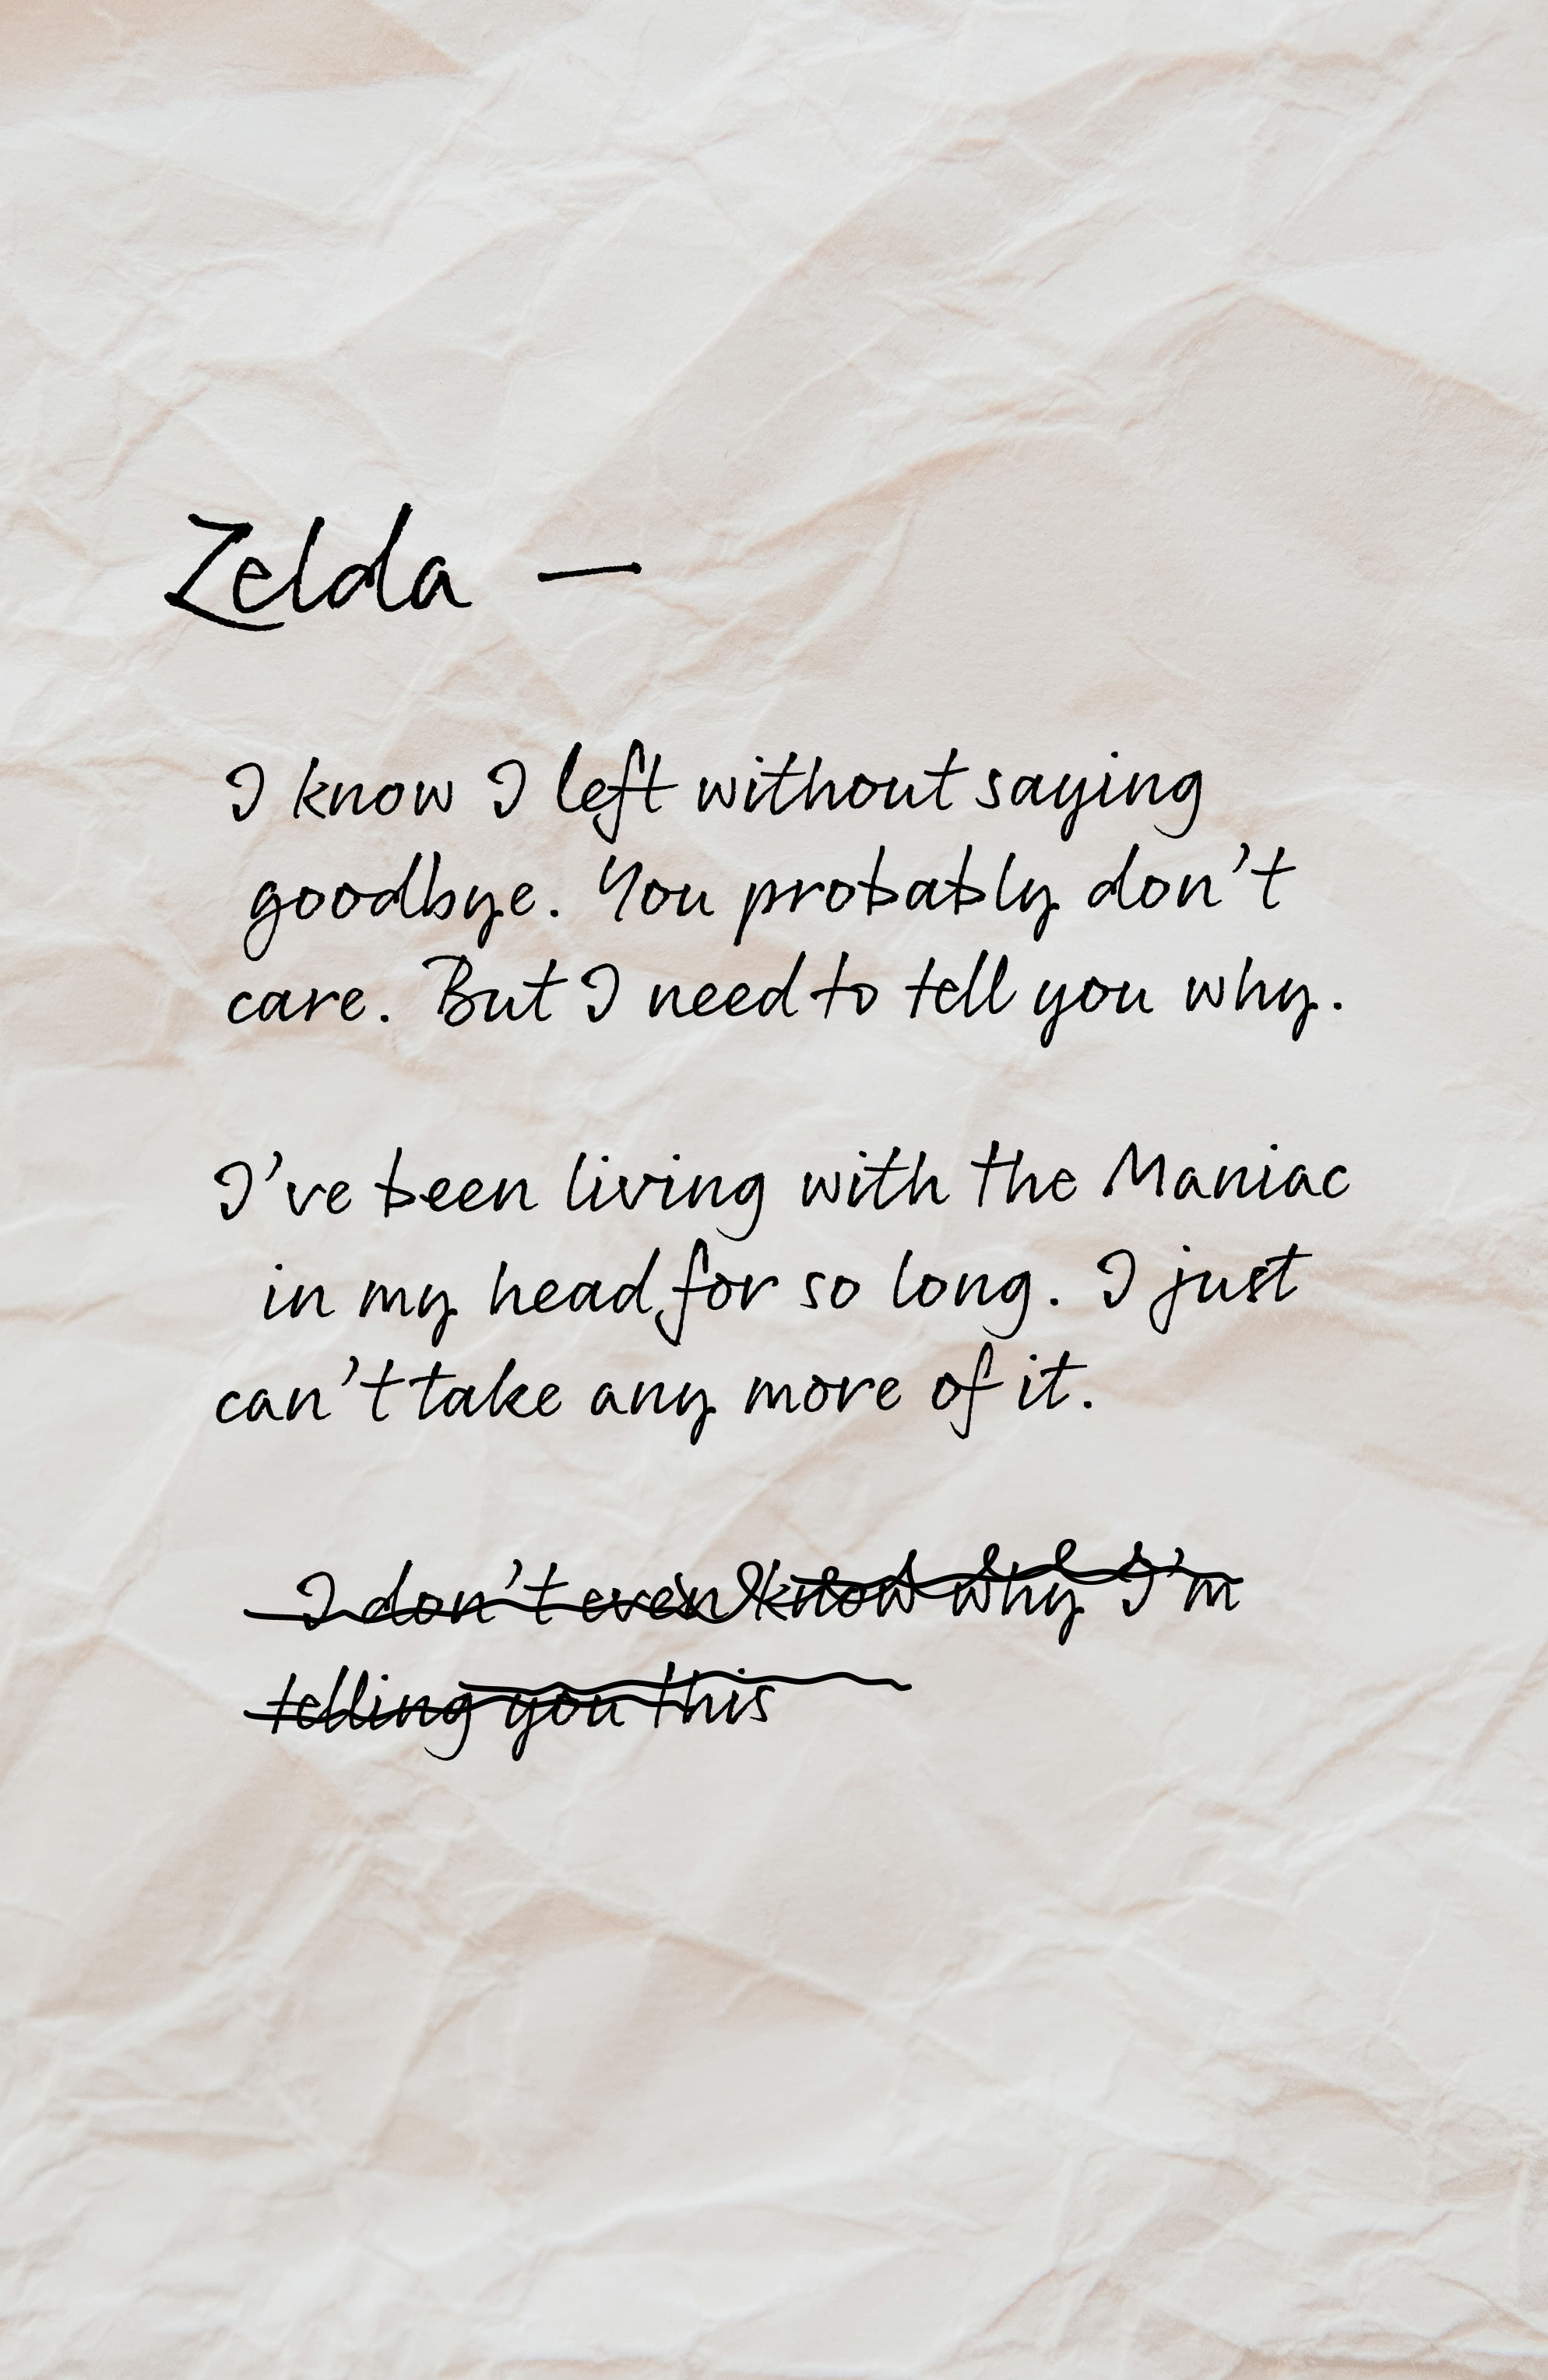 Zelda —
I know I left without saying
goodbye. You probably don't
care. But I need to tell you why.
I've been living with the Maniac
in my head for so long. I just
can't take any more of it.
I don't even know why I'm
telling you this